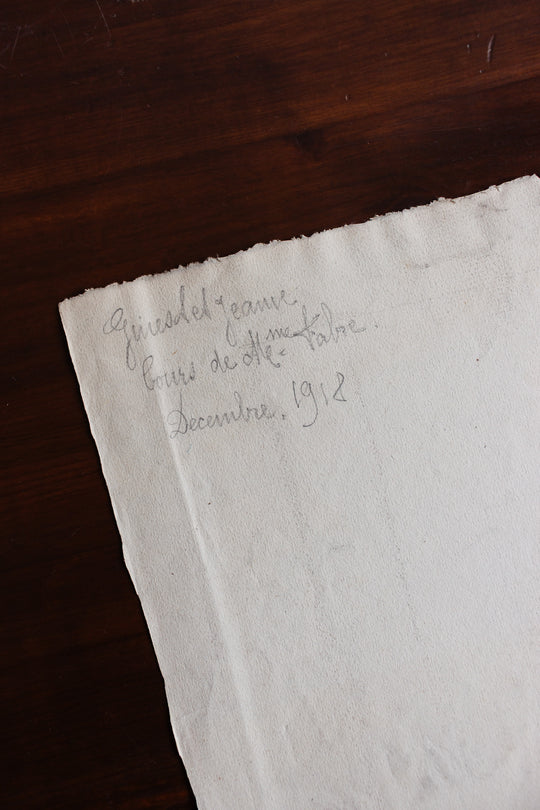 Ginestet Jeanne
Cours de Mme Fabre.
Decembre. 1918